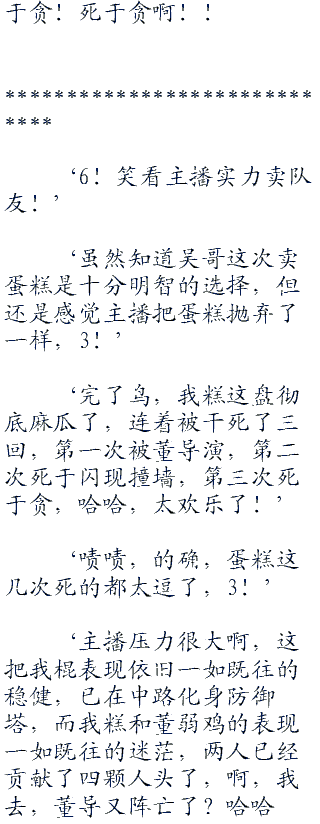 于贪！死于贪啊！！
*************************
****
‘6！笑看主播实力卖队
友！’
‘虽然知道吴哥这次卖
蛋糕是十分明智的选择，但
还是感觉主播把蛋糕抛弃了
一样，3！’
‘完了鸟，我糕这盘彻
底麻瓜了，连着被干死了三
回，第一次被董导演，第二
次死于闪现撞墙，第三次死
于贪，哈哈，太欢乐了！’
‘啧啧，的确，蛋糕这
几次死的都太逗了，3！’
‘主播压力很大啊，这
把我棍表现依旧一如既往的
稳健，已在中路化身防御
塔，而我糕和董弱鸡的表现
一如既往的迷茫，两人已经
贡献了四颗人头了，啊，我
去，董导又阵亡了？哈哈